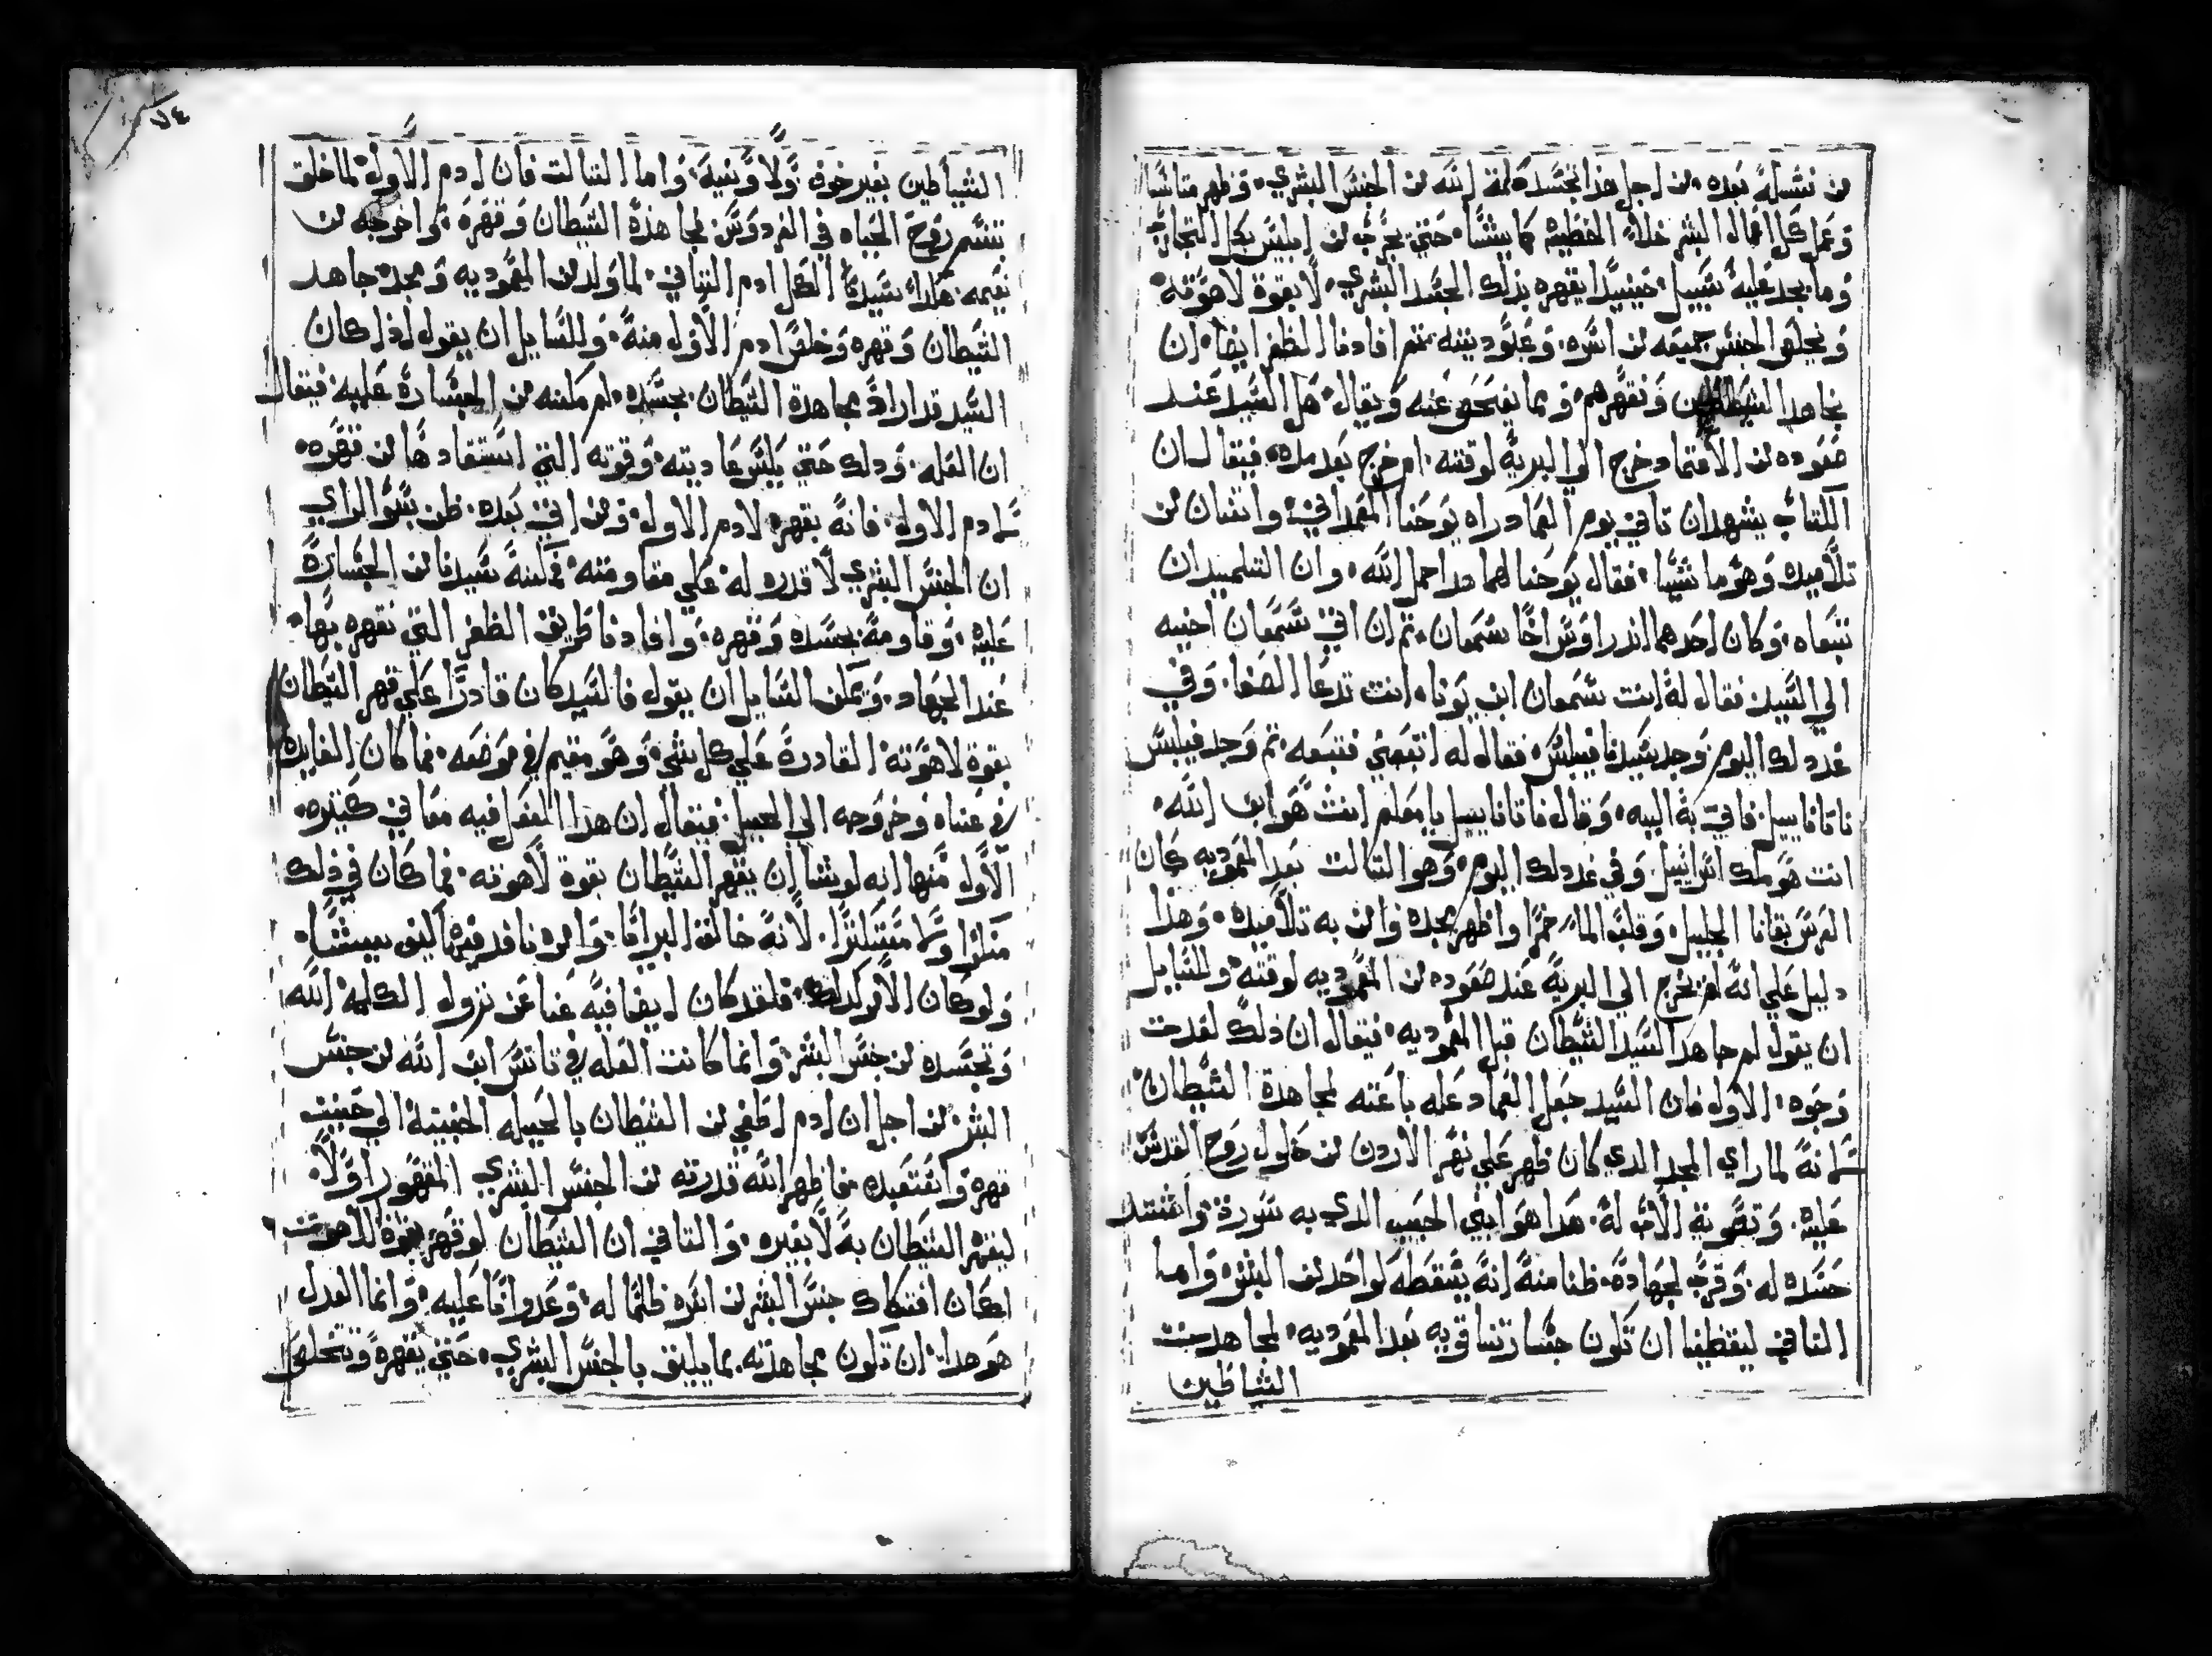 من نسله بعده. من اجل هذا تجسد كلمة الله من الجنس البشري. وظهر متانسا
وعمل كل اعمال البشر خلا الخطيه كما يشا. حتي يجرب من ابليس بكل التجارب
وما يجد عليه سبيل. حينيدا يقهره بذلك الجسد البشري. لا بقوة لاهوته
ويخلص الجنس جميعه من اسره. وعبوديته. تم افادنا الظفر ايضا. ان
نجاهد الشياطين ونقهرهم. ومما يفحص عنه ويقال. هل السيد عند
صعوده من الاعتماد خرج الي البريه لوقته. ام خرج بعد مده. فيقال ان
الكتاب يشهد ان تاني يوم العماد راه يوحنا المعمداني. واتنان من
تلاميده وهو ماشيا. فقال يوحنا لهما هدا حمل الله. وان التلميدان
تبعاه. وكان احدهما اندراوس اخا سمعان. تم ان اتي سمعان اخيه
الي السيد فقال له انت سمعان ابن يونا. انت تدعا الصفا. وفي
غدد لك اليوم وجد سيدنا فيلبس. فقال له اتبعني فتبعه. تم وجد فيلبس
ناتانابيل. فاتي به اليه. وقال ناتانابيل يا معلم انت هو ابن الله.
انت هو ملك اسراييل. وفي غدد لك اليوم. وهو التالت بعد المعموديه كان
العرس بقانا الجليل. وقلب الما خمرا واظهر مجده وامن به تلاميده. وهذا
دليل علي انه لم يخرج الي البرية عند صعوده من المعموديه لوقته. وللسايل
ان يقول لم جاهد السيد الشيطان قبل المعموديه. فيقال ان ذلك لعدت
وجوه. الاول فان السيد جعل العماد عله باعته لمجاهدة الشيطان.
لانه لما راي المجد الدي كان ظهر علي نهر الاردن من حلول روح القدس
عليه. وتصويت الاب له. هدا هو ابني الحبيب الدي به سررت. واشتد
حسده له. وقرب لجهاده. ظنا منه انه يسقطه كواحد من البشر. واما
التاني ليعظينا ان تكون جسارتنا قويه بعد المعموديه. لمجاهدت
الشياطين
٧٤
الشياطين بغير خوف ولا ونيه. واما التالت فان ادم الاول لما خلق
تنسم روح الحياه في الفردوس. لمجاهدة الشيطان وقهره. واخرجه من
نعيمه. هكدا سيدنا الكل ادم التاني. لما ولد من المعموديه ومجد. جاهد
الشيطان وقهره وخلص ادم الاول منه. وللسايل ان يقول اذا كان
السيد قد اراد مجاهدة الشيطان. بجسده. لم مكنه من الجسارة عليه فيقال
ان العله. ودلك حتي يلبس عاديته. وقوته التي استفادها من قهره.
لادم الاول. فانه بقهره لادم الاول. ومن اتي بعده. ظن بسو الراي
ان الجنس البشري لا قدره له علي مقاومته. فمكنه سيدنا من الجساره
عليه. وقاومه بجسده وقهره. وافادنا طريق الظفر التي نقهره بها.
عند الجهاد. ويمكن السايل ان يقول فالسيد كان قادرا علي قهر الشيطان
بقوة لاهوته القادرة علي كل شي. وهو مقيم في موضعه. فما كان الفايده
في عناه وخروجه الي الجبل. فيقال ان هدا الفعل فيه معاني كتيره.
الاول منها انه لو شا ان يقهر الشيطان بقوة لاهوته. فما كان في ذلك
منكرا ولا مستكترا. لانه خالق البرايا. وامره نافد فيها كيف يشا.
ولو كان الامر كدلك. فلقد كان ايضا فيه غنا عن نزول الكلمة الله
وتجسده من جنس البشر. وانما كانت العله في تانس ابن الله من جنس
البشر. من اجل ان ادم اطغي من الشيطان بالحيله الخبيتة الي حيت
قهره واستعبده. فاظهر الله قدرته من الجنس البشري المقهور اولا.
ليقهر الشيطان به لا بغيره. والتاني ان الشيطان لو قهر بقوة اللاهوت
لكان افتكاك جنس البشر من اسره ظلما له. وعدوانا عليه. وانما العدل
هو هدا. ان تكون مجاهدته. بما يليق بالجنس البشري. حتي يقهره ويتخلص